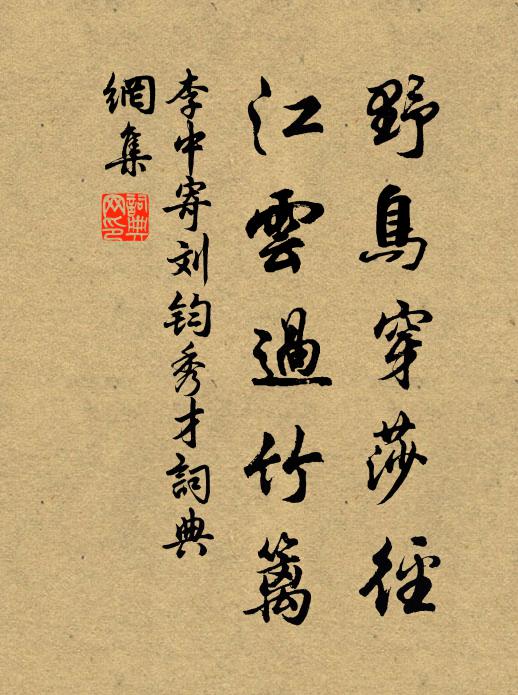 野鳥穿莎徑
江雲過竹籬
李中寄刘钧秀才詞典
網集
詞典網印